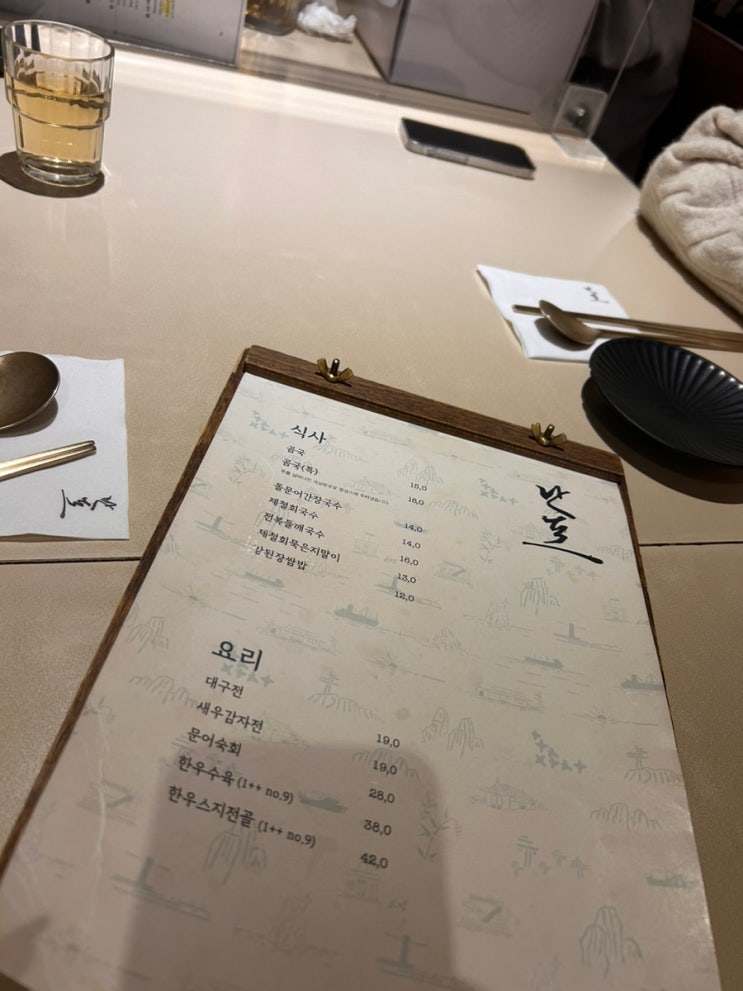 식사
곰국 15,0
곰국(특) 18,0
돌문어간장국수 14,0
제철회국수 14,0
전복들깨국수 16,0
제철회묵은지말이 13,0
강된장쌈밥 12,0
난포
요리
대구전 19,0
새우감자전 19,0
문어숙회 28,0
한우수육 (1++ no.9) 38,0
한우스지전골 (1++ no.9) 42,0
난포
난포